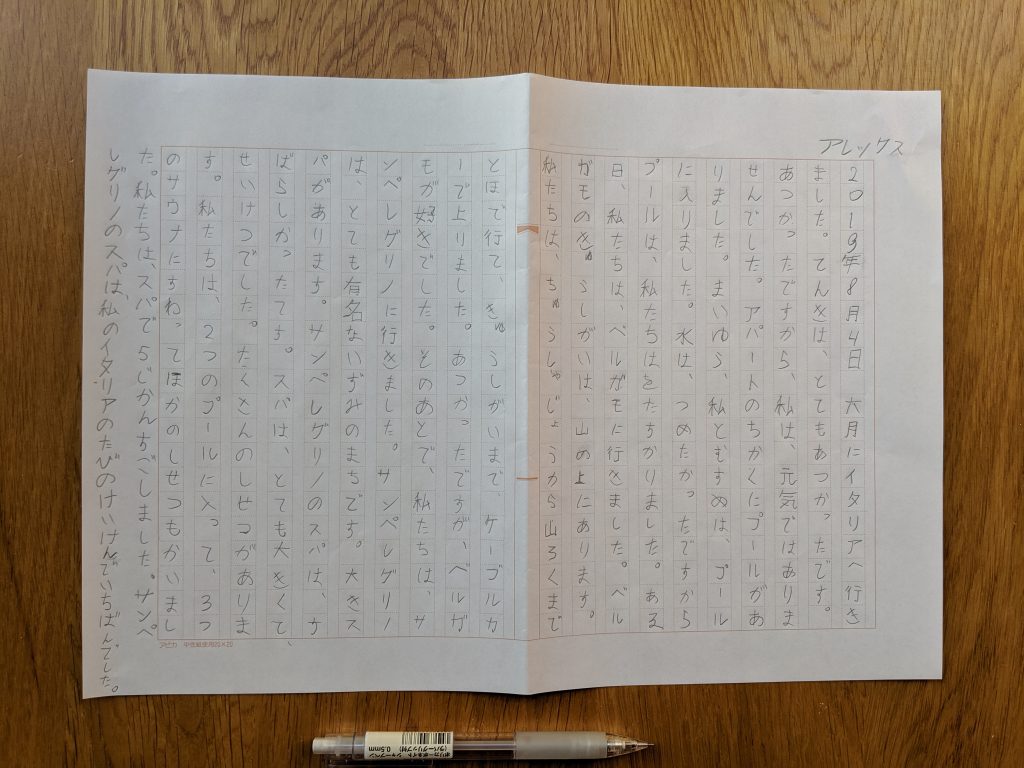 アレックス
2019年8月4日 六月にイタリアへ行き
ました。てんきは、とてもあつかったです。
あつかったですから、私は、元気ではありま
せんでした。アパートのちかくにプールがあ
りました。まいゆう、私とむすめは、プール
に入りました。水は、つめたかったですから
プールは、私たちはをたすかりました。ある
日、私たちは、ベルガモに行きました。ベル
ガモのきゅうしがいは、山の上にあります。
私たちは、ちゅうしゃじょうから山ろくまで
とほで行て、きゅうしがいまで、ケーブルカ
ーで上りました。あつかったですが、ベルガ
モが好きでした。そのあとで、私たちは、サ
ンペレグリノに行きました。サンペレグリノ
は、とても有名ないずみのまちです。大きス
パがあります。サンペレグリノのスパは、す
ばらしかったです。スパは、とても大きくて、
せいけつでした。たくさんのしせつがありま
す。私たちは、2つのプールに入って、3つ
のサウナにすわってほかのしせつもかいまし
た。私たちは、スパで5じかんすごしました。サンペ
レグリノのスパは、私のイタリアのたびのけいけんでいちばんでした。
アピカ 中性紙使用20×20
ポリカーボネイト
シャープペン
(ラバーグリップ付)
0.5mm